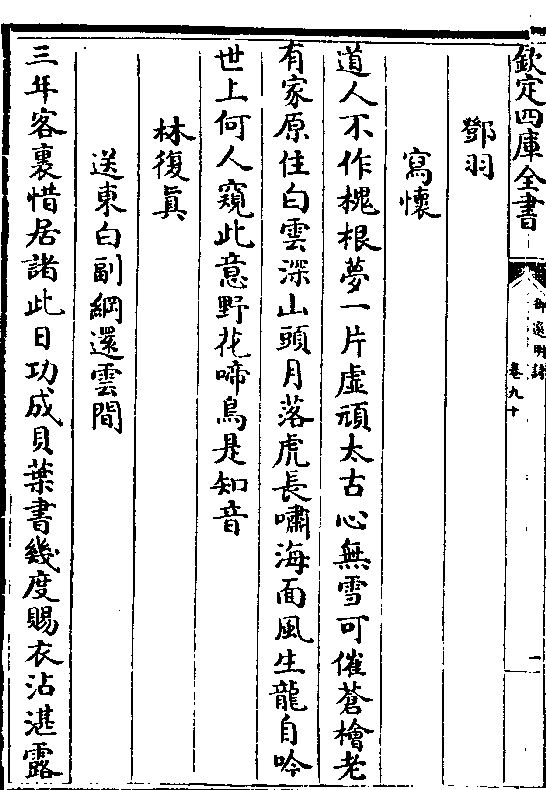 欽定四庫全書
御選明詩
卷九十
一
鄧羽
寫懷
道人不作槐根夢一片虛頑太古心無雪可催蒼檜老
有家原住白雲深山頭月落虎長嘯海面風生龍自吟
世上何人窺此意野花啼鳥是知音
林復真
送東白副綱還雲間
三年客裏惜居諸此日功成貝葉書幾度賜衣沾湛露